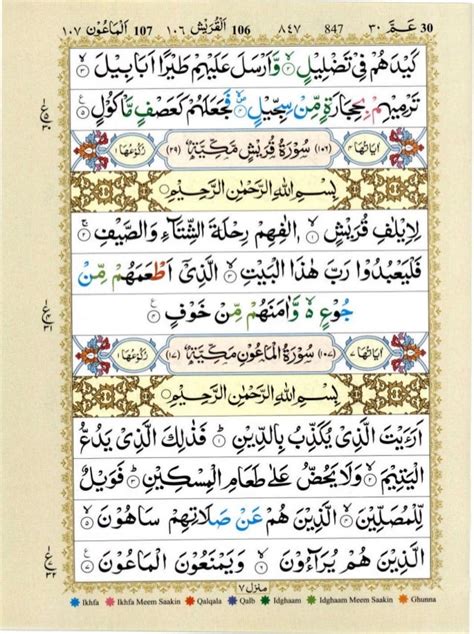 30 عَمَّ ٣٠ 847 ٨٤٧ 106 اَلْقُرَيْش ١٠٦ 107 اَلْمَاعُوْن ١٠٧
كَيْدَهُمْ فِيْ تَضْلِيْلٍ ۙ۲ وَّاَرْسَلَ عَلَيْهِمْ طَيْرًا اَبَابِيْلَ ۙ۳
تَرْمِيْهِمْ بِحِجَارَةٍ مِّنْ سِجِّيْلٍ ۙ۴ فَجَعَلَهُمْ كَعَصْفٍ مَّاْكُوْلٍ ۵
اٰيَاتُهَا ۴ (۱۰۶) سُوْرَةُ قُرَيْشٍ مَكِّيَّةٌ (۲۹) رُكُوْعُهَا ۱
بِسْمِ اللّٰهِ الرَّحْمٰنِ الرَّحِيْمِ
لِاِيْلٰفِ قُرَيْشٍ ۙ۱ اٖلٰفِهِمْ رِحْلَةَ الشِّتَآءِ وَالصَّيْفِ ۚ۲
فَلْيَعْبُدُوْا رَبَّ هٰذَا الْبَيْتِ ۙ۳ الَّذِيْٓ اَطْعَمَهُمْ مِّنْ
جُوْعٍ ۙ۵ وَّاٰمَنَهُمْ مِّنْ خَوْفٍ ۴
اٰيَاتُهَا ۷ (۱۰۷) سُوْرَةُ الْمَاعُوْنِ مَكِّيَّةٌ (۱۷) رُكُوْعُهَا ۱
بِسْمِ اللّٰهِ الرَّحْمٰنِ الرَّحِيْمِ
اَرَءَيْتَ الَّذِيْ يُكَذِّبُ بِالدِّيْنِ ۱ فَذٰلِكَ الَّذِيْ يَدُعُّ
الْيَتِيْمَ ۙ۲ وَلَا يَحُضُّ عَلٰى طَعَامِ الْمِسْكِيْنِ ۳ فَوَيْلٌ
لِّلْمُصَلِّيْنَ ۙ۴ الَّذِيْنَ هُمْ عَنْ صَلَاتِهِمْ سَاهُوْنَ ۙ۵
الَّذِيْنَ هُمْ يُرَآءُوْنَ ۙ۶ وَيَمْنَعُوْنَ الْمَاعُوْنَ ۷
منزل ۷
Ikhfa Ikhfa Meem Saakin Qalqala Qalb Idghaam Idghaam Meem Saakin Ghunna